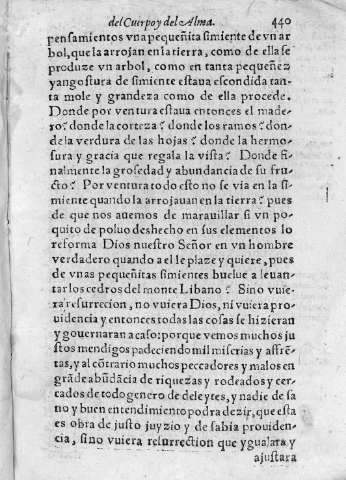 del Cuerpo y del Alma. 440
pensamientos vna pequeñita simiente de vn ar
bol, que la arrojan en la tierra, como de ella se
produze vn arbol, como en tanta pequeñez
y angostura de simiente estaua escondida tan
ta mole y grandeza como de ella procede.
Donde por ventura estaua entonces el made-
ro? donde la corteza? donde los ramos? don-
de la verdura de las hojas? donde la hermo-
sura y gracia que regala la vista? Donde fi-
nalmente la grosedad y abundancia de su fru-
cto? Por ventura todo esto no se via en la si-
miente quando la arrojauan en la tierra? pues
de que nos auemos de marauillar si vn po-
quito de poluo deshecho en sus elementos lo
reforma Dios nuestro Señor en vn hombre
verdadero quando a el le plaze y quiere, pues
de vnas pequeñitas simientes buelue a leuan-
tar los cedros del monte Libano? Sino vuie-
ra resurrecion, no vuiera Dios, ni vuiera pro-
uidencia y entonces todas las cosas se hizieran
y gouernaran a caso: porque vemos muchos ju
stos mendigos padeciendo mil miserias y affrẽ-
tas, y al cõtrario muchos peccadores y malos en
grãde abũdãcia de riquezas y rodeados y cer-
cados de todo genero de deleytes, y nadie de sa
no y buen entendimiento podra dezir, que esta
es obra de justo juyzio y de sabia prouiden-
cia, sino vuiera resurrection que ygualara y
ajustara